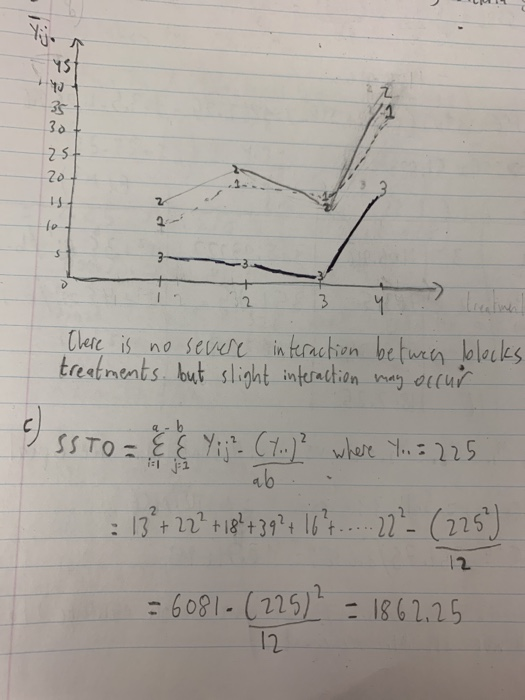 Ȳij.
45
40
35
30
25
20
15
10
5
0
2
1
3
2
1
3
1
2
3
2
1
3
1 2 3 4
There is no severe interaction between blocks
treatments but slight interaction may occur
c) SSTO = Σ(i=1 to a) Σ(j=1 to b) Yij² - (Y..)²/ab where Y.. = 225
= 13² + 22² + 18² + 39² + 16² + ..... 22² - (225²)/12
= 6081 - (225)²/12 = 1862.25